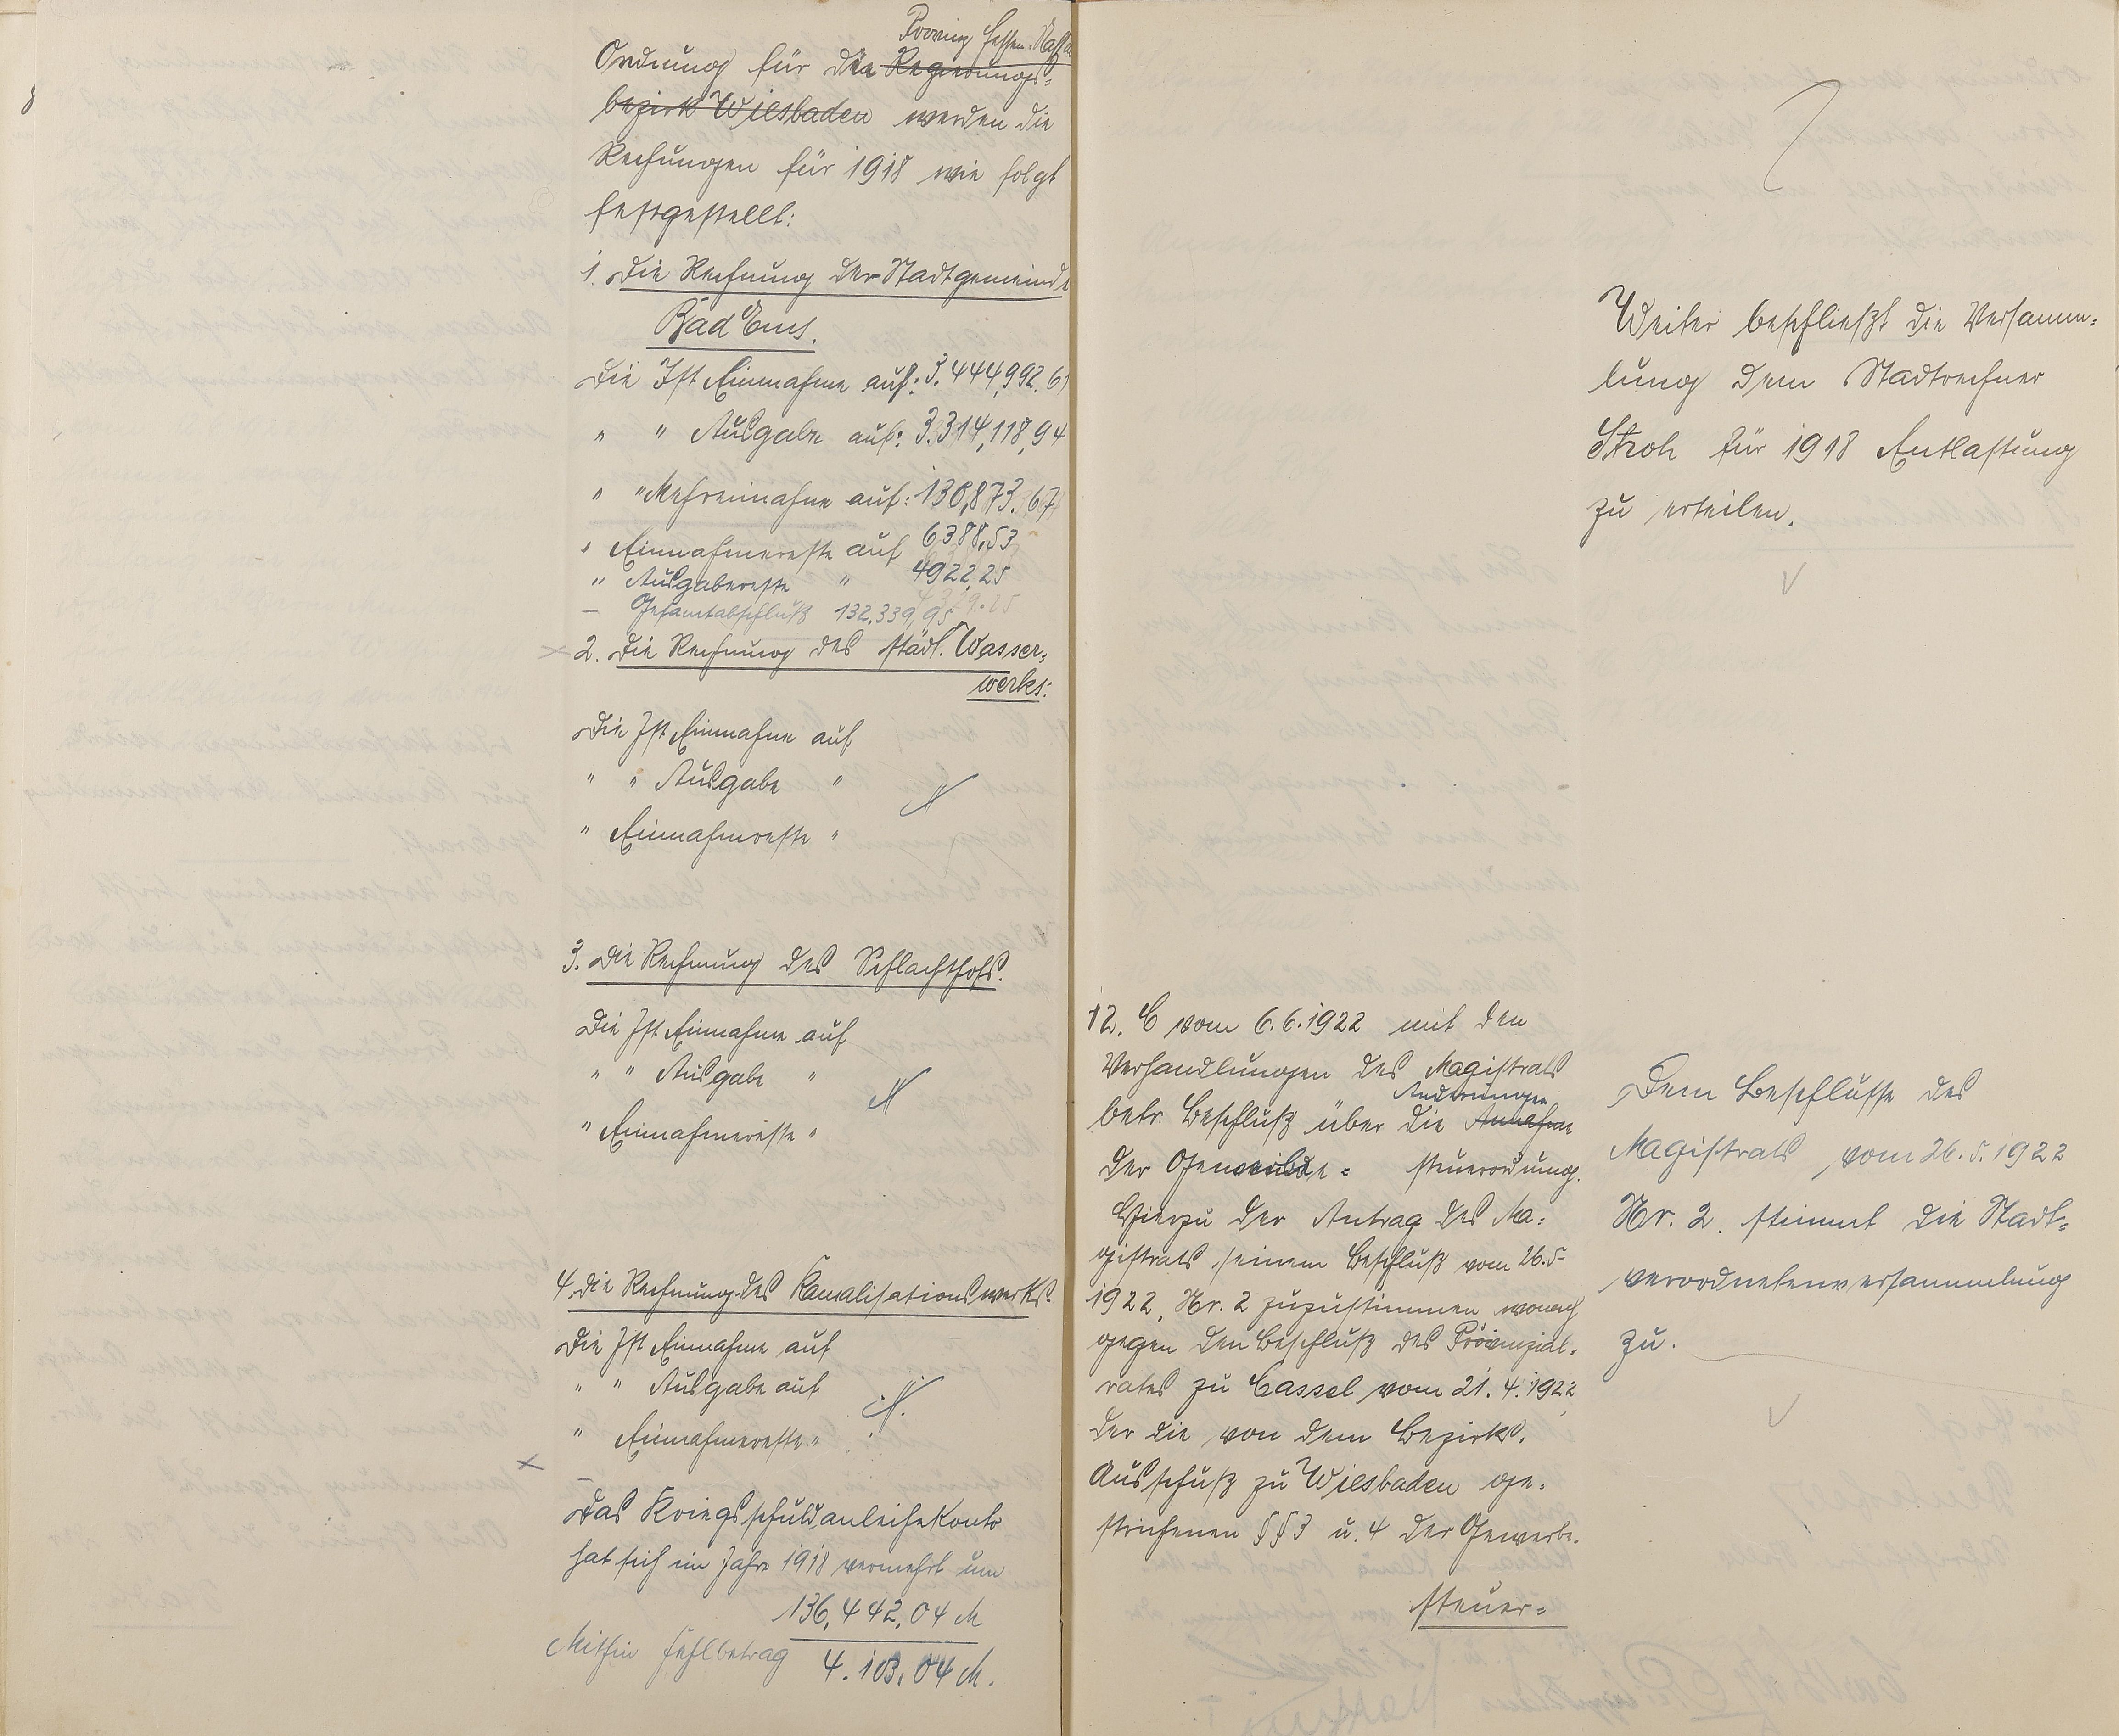 Provinz Hessen-Nassau
Ordnung für die Regierungs-
bezirk Wiesbaden werden die
Rechungen für 1918 wie folgt
festgestellt:
1. Die Rechnung der Stadtgemeinde
Bad Ems.
Die Ist Einnahme auf: 3.444,992.61
" " Ausgabe auf: 3.314,118,94
" " Mehreinnahme auf: 130,873.67
" Einnahmereste auf 6388,53
" Ausgabereste " 4922,25
— Gesamtabschluß 132.339,95
2. Die Rechnung des städt. Wasser-
werks:
Die Ist Einnahme auf
" " Ausgabe "
" Einnahmereste "
3. Die Rechnung des Schlachthofs.
Die Ist Einnahme auf
" " Ausgabe "
" Einnahmereste "
4. Die Rechnung des Kanalisationswerks.
Die Ist Einnahme auf
" " Ausgabe auf
" Einnahmereste "
Das Kriegsschuldanleihekonto
hat sich im Jahre 1918 vermehrt um
136,442,04 M
Mithin Fehlbetrag 4.103.04 M.
Weiter beschließt die Versamm-
lung dem Stadtrechner
Stroh für 1918 Entlastung
zu erteilen.
12. C vom 6.6.1922 mit den
Verhandlungen des Magistrats
Änderungen
betr. Beschluß über die Annahme
der Gewerbe- steuerordnung.
Hierzu der Antrag des Ma-
gistrats, seinem Beschluß vom 26.5
1922, Nr. 2 zuzustimmen wonach
gegen den Beschluß des Provinzial-
rates zu Cassel vom 21.4.1922,
der die von dem Bezirks-
Ausschuß zu Wiesbaden ge-
strichenen §§ 3 u. 4 der Gewerbe-
steuer-
Dem Beschlusse des
Magistrats vom 26.5.1922
Nr. 2. stimmt die Stadt-
verordnetenversammlung
zu.